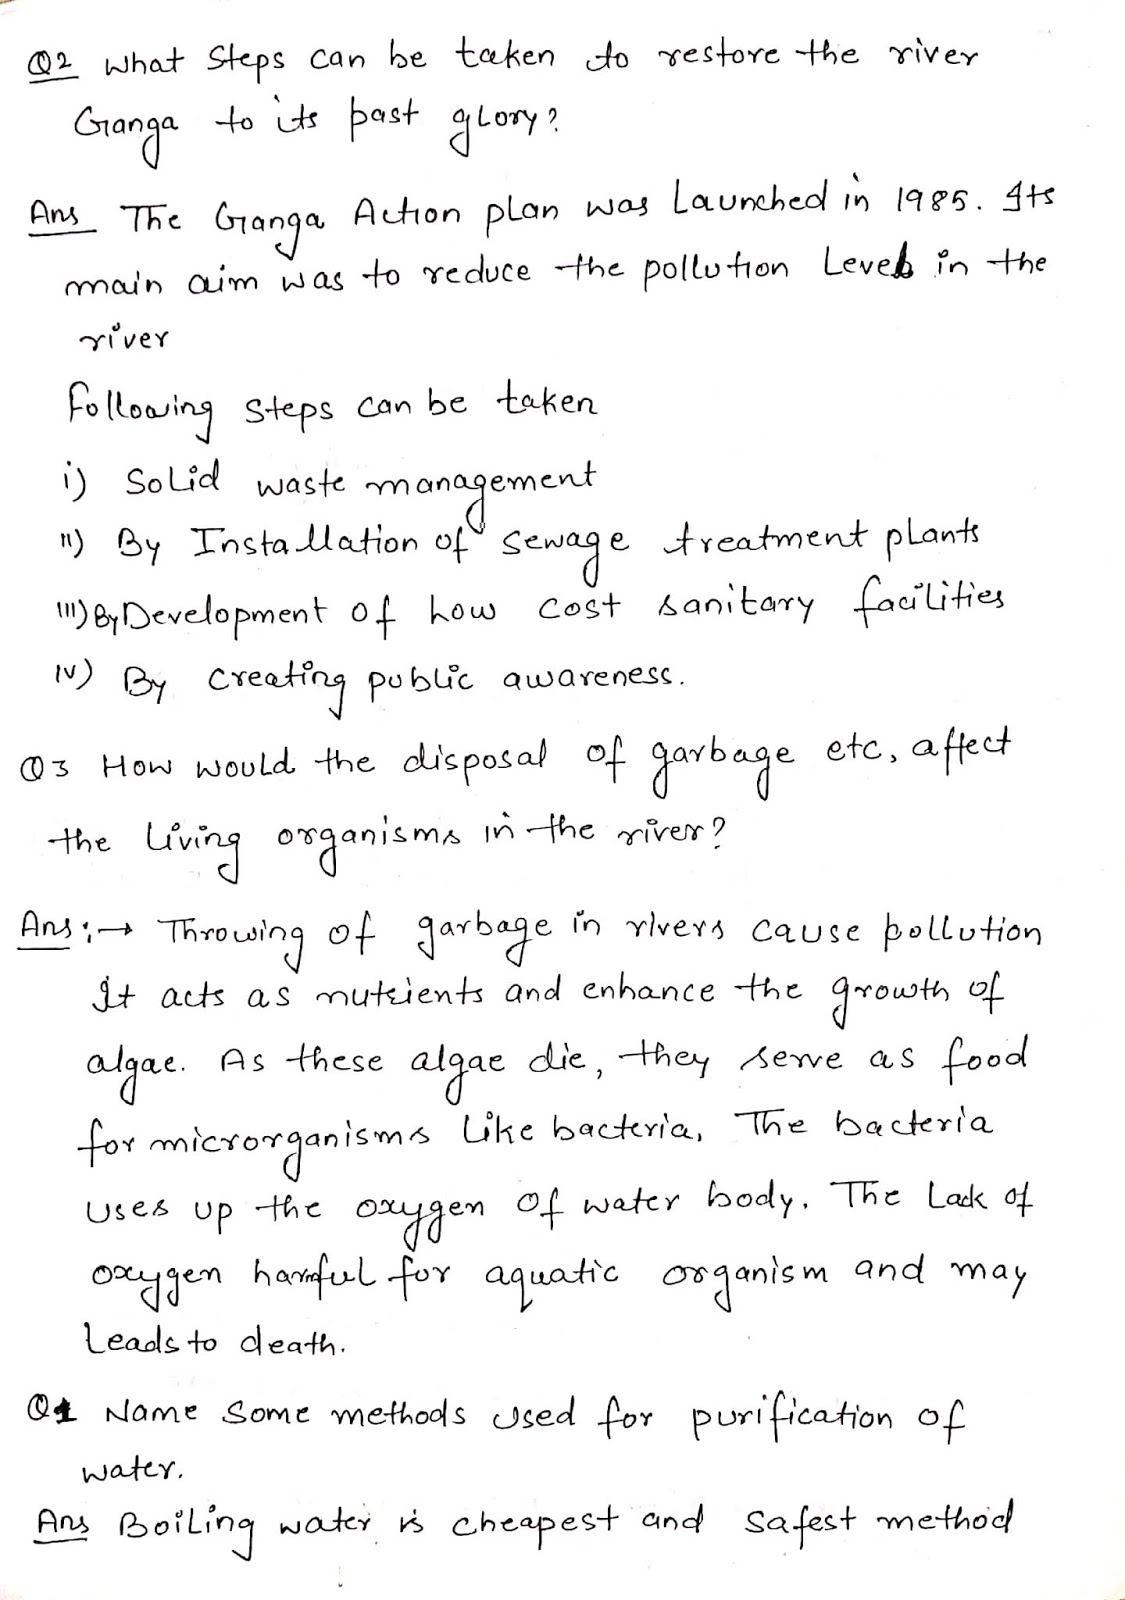 Q2 what Steps can be taken to restore the river
Ganga to its past glory?
Ans The Ganga Action plan was Launched in 1985. Its
main aim was to reduce the pollution Levels in the
river
Following steps can be taken
i) Solid waste management
ii) By Installation of sewage treatment plants
iii) By Development of how cost sanitary facilities
iv) By creating public awareness.
Q3 How would the disposal of garbage etc, affect
the living organisms in the river?
Ans :→ Throwing of garbage in rivers cause pollution
It acts as nutrients and enhance the growth of
algae. As these algae die, they serve as food
for microrganisms like bacteria, The bacteria
uses up the oxygen of water body. The Lack of
oxygen harmful for aquatic organism and may
Leads to death.
Q1 Name some methods used for purification of
water.
Ans Boiling water is cheapest and safest method